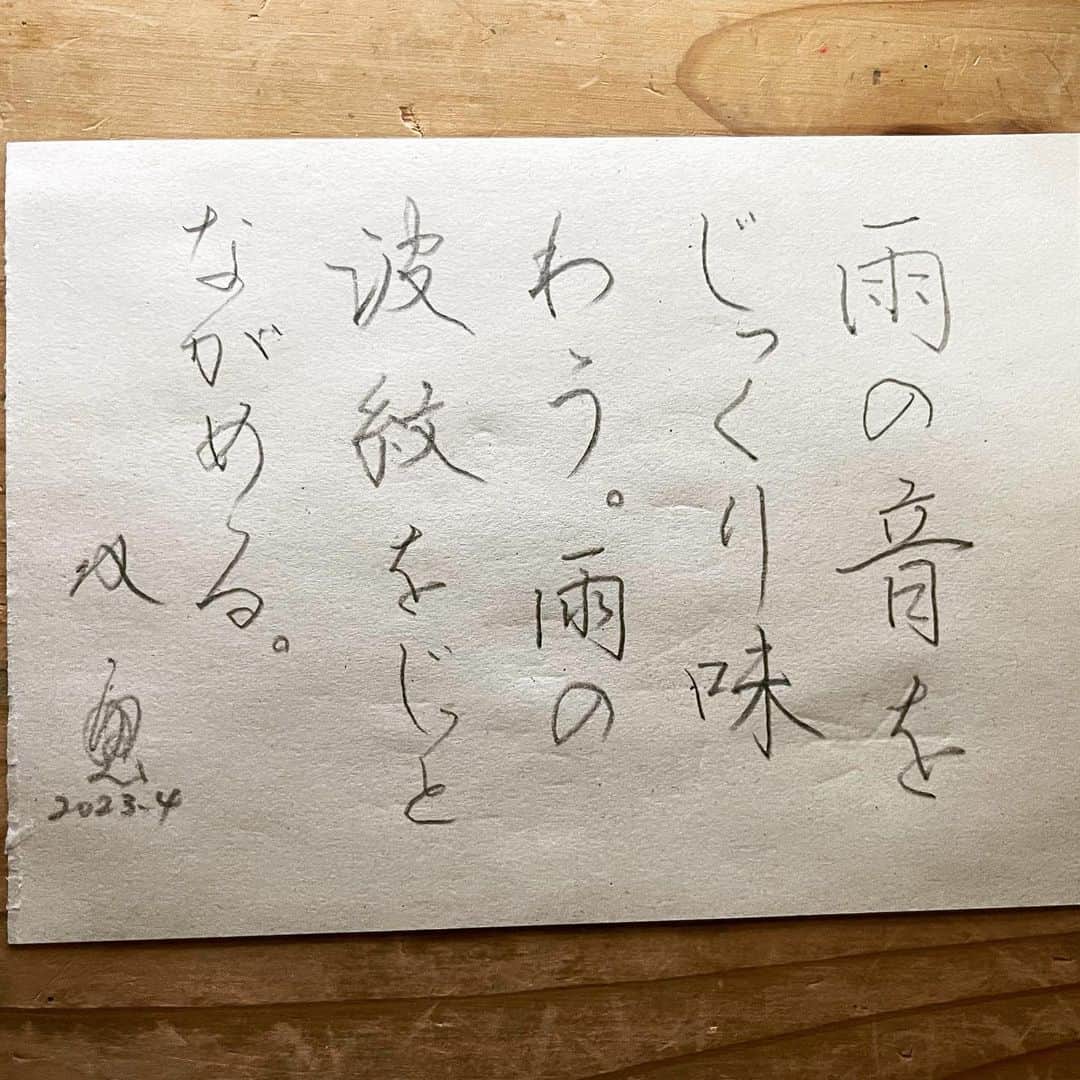 雨の音を
じっくり味
わう。雨の
波紋をじっと
ながめる。
2023.4